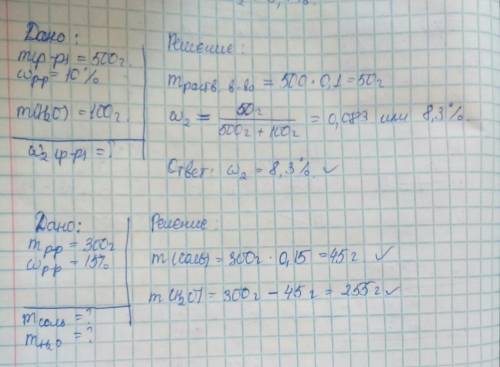 Дано:
m(р-р₁) = 500г
ωрр = 10%
m(H₂O) = 100г
ω₂(р-р₁) = ?
Решение:
mраств. в-ва = 500 · 0,1 = 50г
ω₂ = 50г / 500г + 100г = 0,083 или 8,3%.
Ответ: ω₂ = 8,3%. ✓
Дано:
mрр = 300г
ωрр = 15%
mсоль = ?
mH₂O = ?
Решение:
m(соль) = 300г · 0,15 = 45г ✓
m(H₂O) = 300г – 45г = 255г ✓